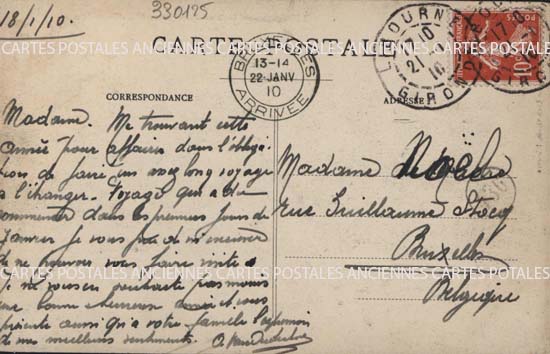 18/1/10.
330125
CARTE POSTALE
CORRESPONDANCE
ADRESSE
BRUXELLES
13-14
22 JANV
10
ARRIVEE
LIBOURNE
GIRONDE
10
POSTES
Madame. Me trouvant cette
année pour affaires dans l'obliga
tion de faire un assez long voyage
a l'étranger. Voyage qui a du
commencer dans les premiers jours de
Janvier je vous prie de m'excuser
de ne pouvoir vous faire visite
Je ne vous en souhaite pas moins
une bonne et heureuse année et vous
présente ainsi qu'a votre famille l'expression
de mes meilleurs sentiments.
Madame de
rue Guillaume Stocq
Bruxelles
Belgique
CARTES POSTALES ANCIENNES CARTES POSTALES ANCIENNES CARTES POSTALES